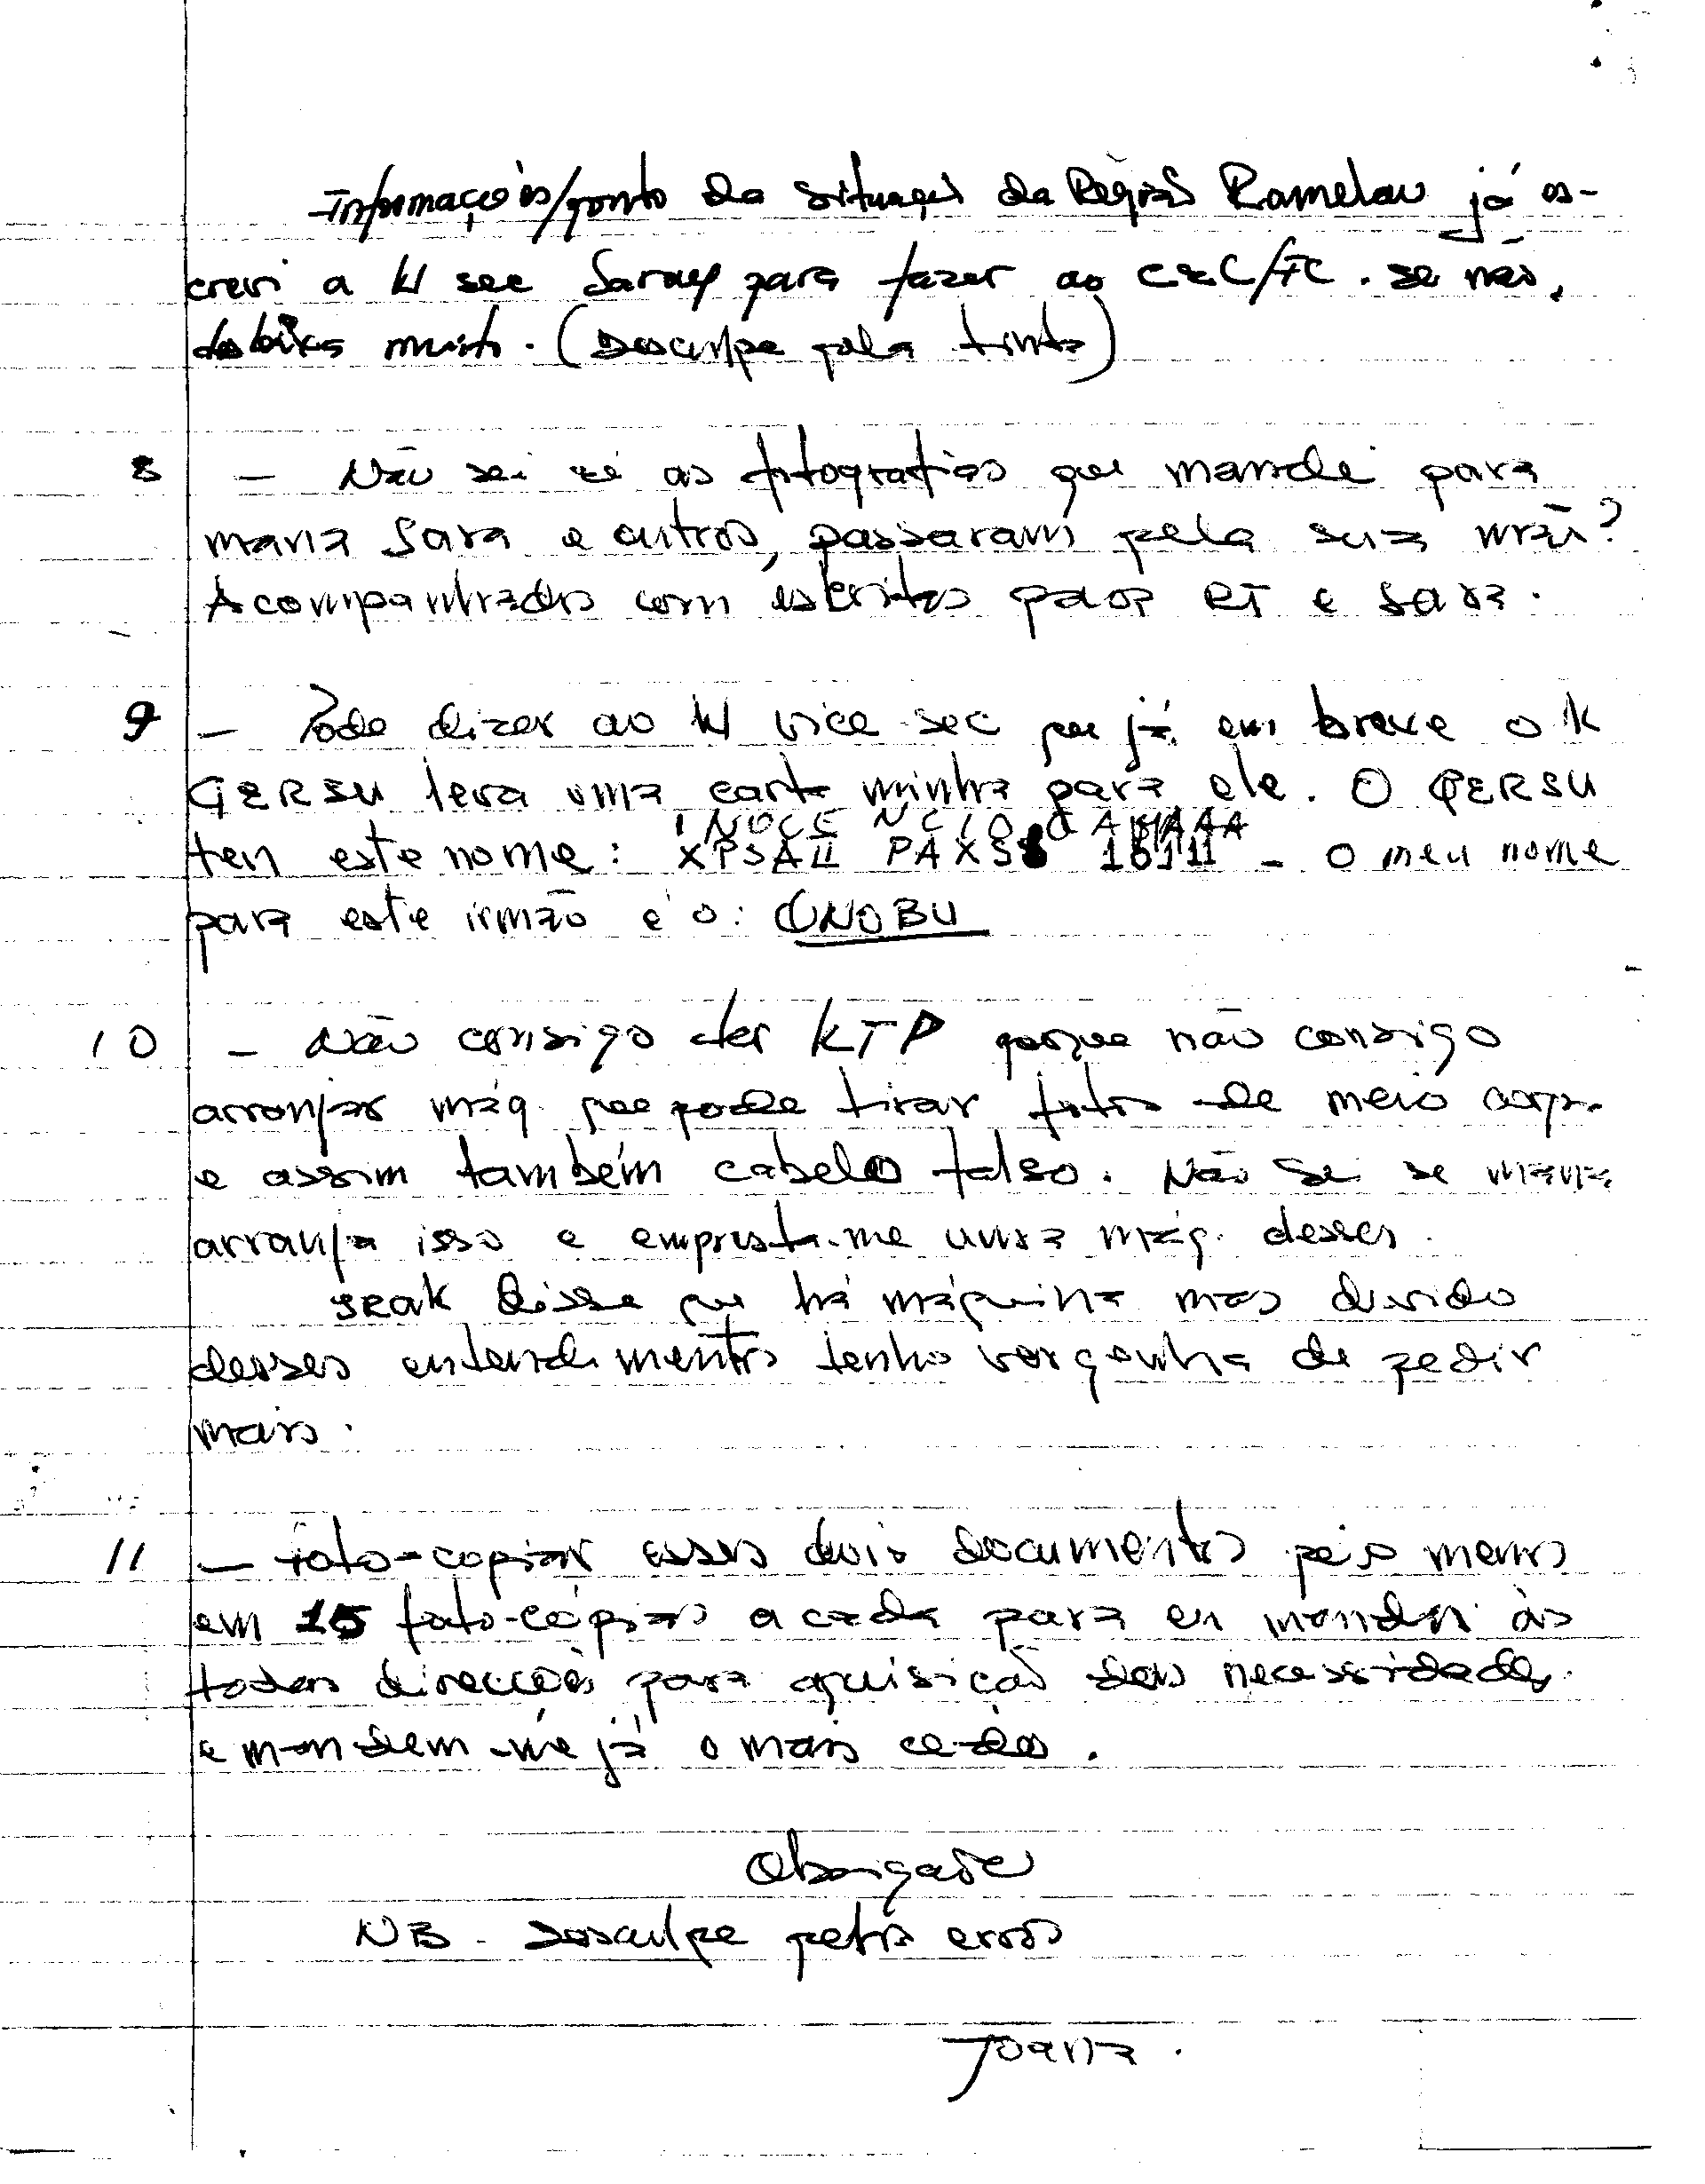 Informações/ponto da situação da Região Ramelau já es-
crevi a W sec Saray para fazer ao CEC/FC. se não,
muito. (Desculpe pela tinta)
8 - Não sei se as fotografias que mandei para
mana Sara e outros, passaram pela sua mão?
Acompanhados com escritos para RI e Sara.
9 - Pode dizer ao W vice-sec que já em breve o K
GERSU terá uma carta minha para ele. O GERSU
INOCÊNCIO
tem este nome: XPSAII PAXS 1611 - o meu nome
para este irmão é o: ONOBU
10 - Não consigo ter KTP porque não consigo
arranjar máq. que pode tirar fotos de meio corpo
e assim também cabelo falso. Não sei se mana
arranja isso e empresta-me uma máq. desses.
disse que há máquina mas devido
desses entendimentos tenho vergonha de pedir
mais.
11 - Foto-copiar esses dois documentos pelo menos
em 15 foto-cópias a cada para eu mandar às
todas direcções para aquisição das necessidades
e mandem-me já o mais cedo.
Obrigado
NB - Desculpe pelos erros
Joana.